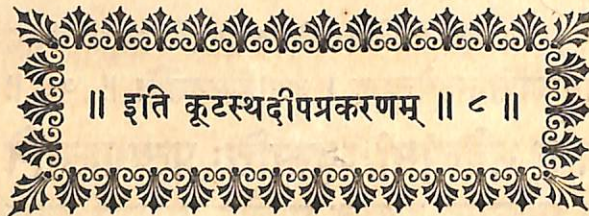 ॥ इति कूटस्थदीपप्रकरणम् ॥ ८ ॥